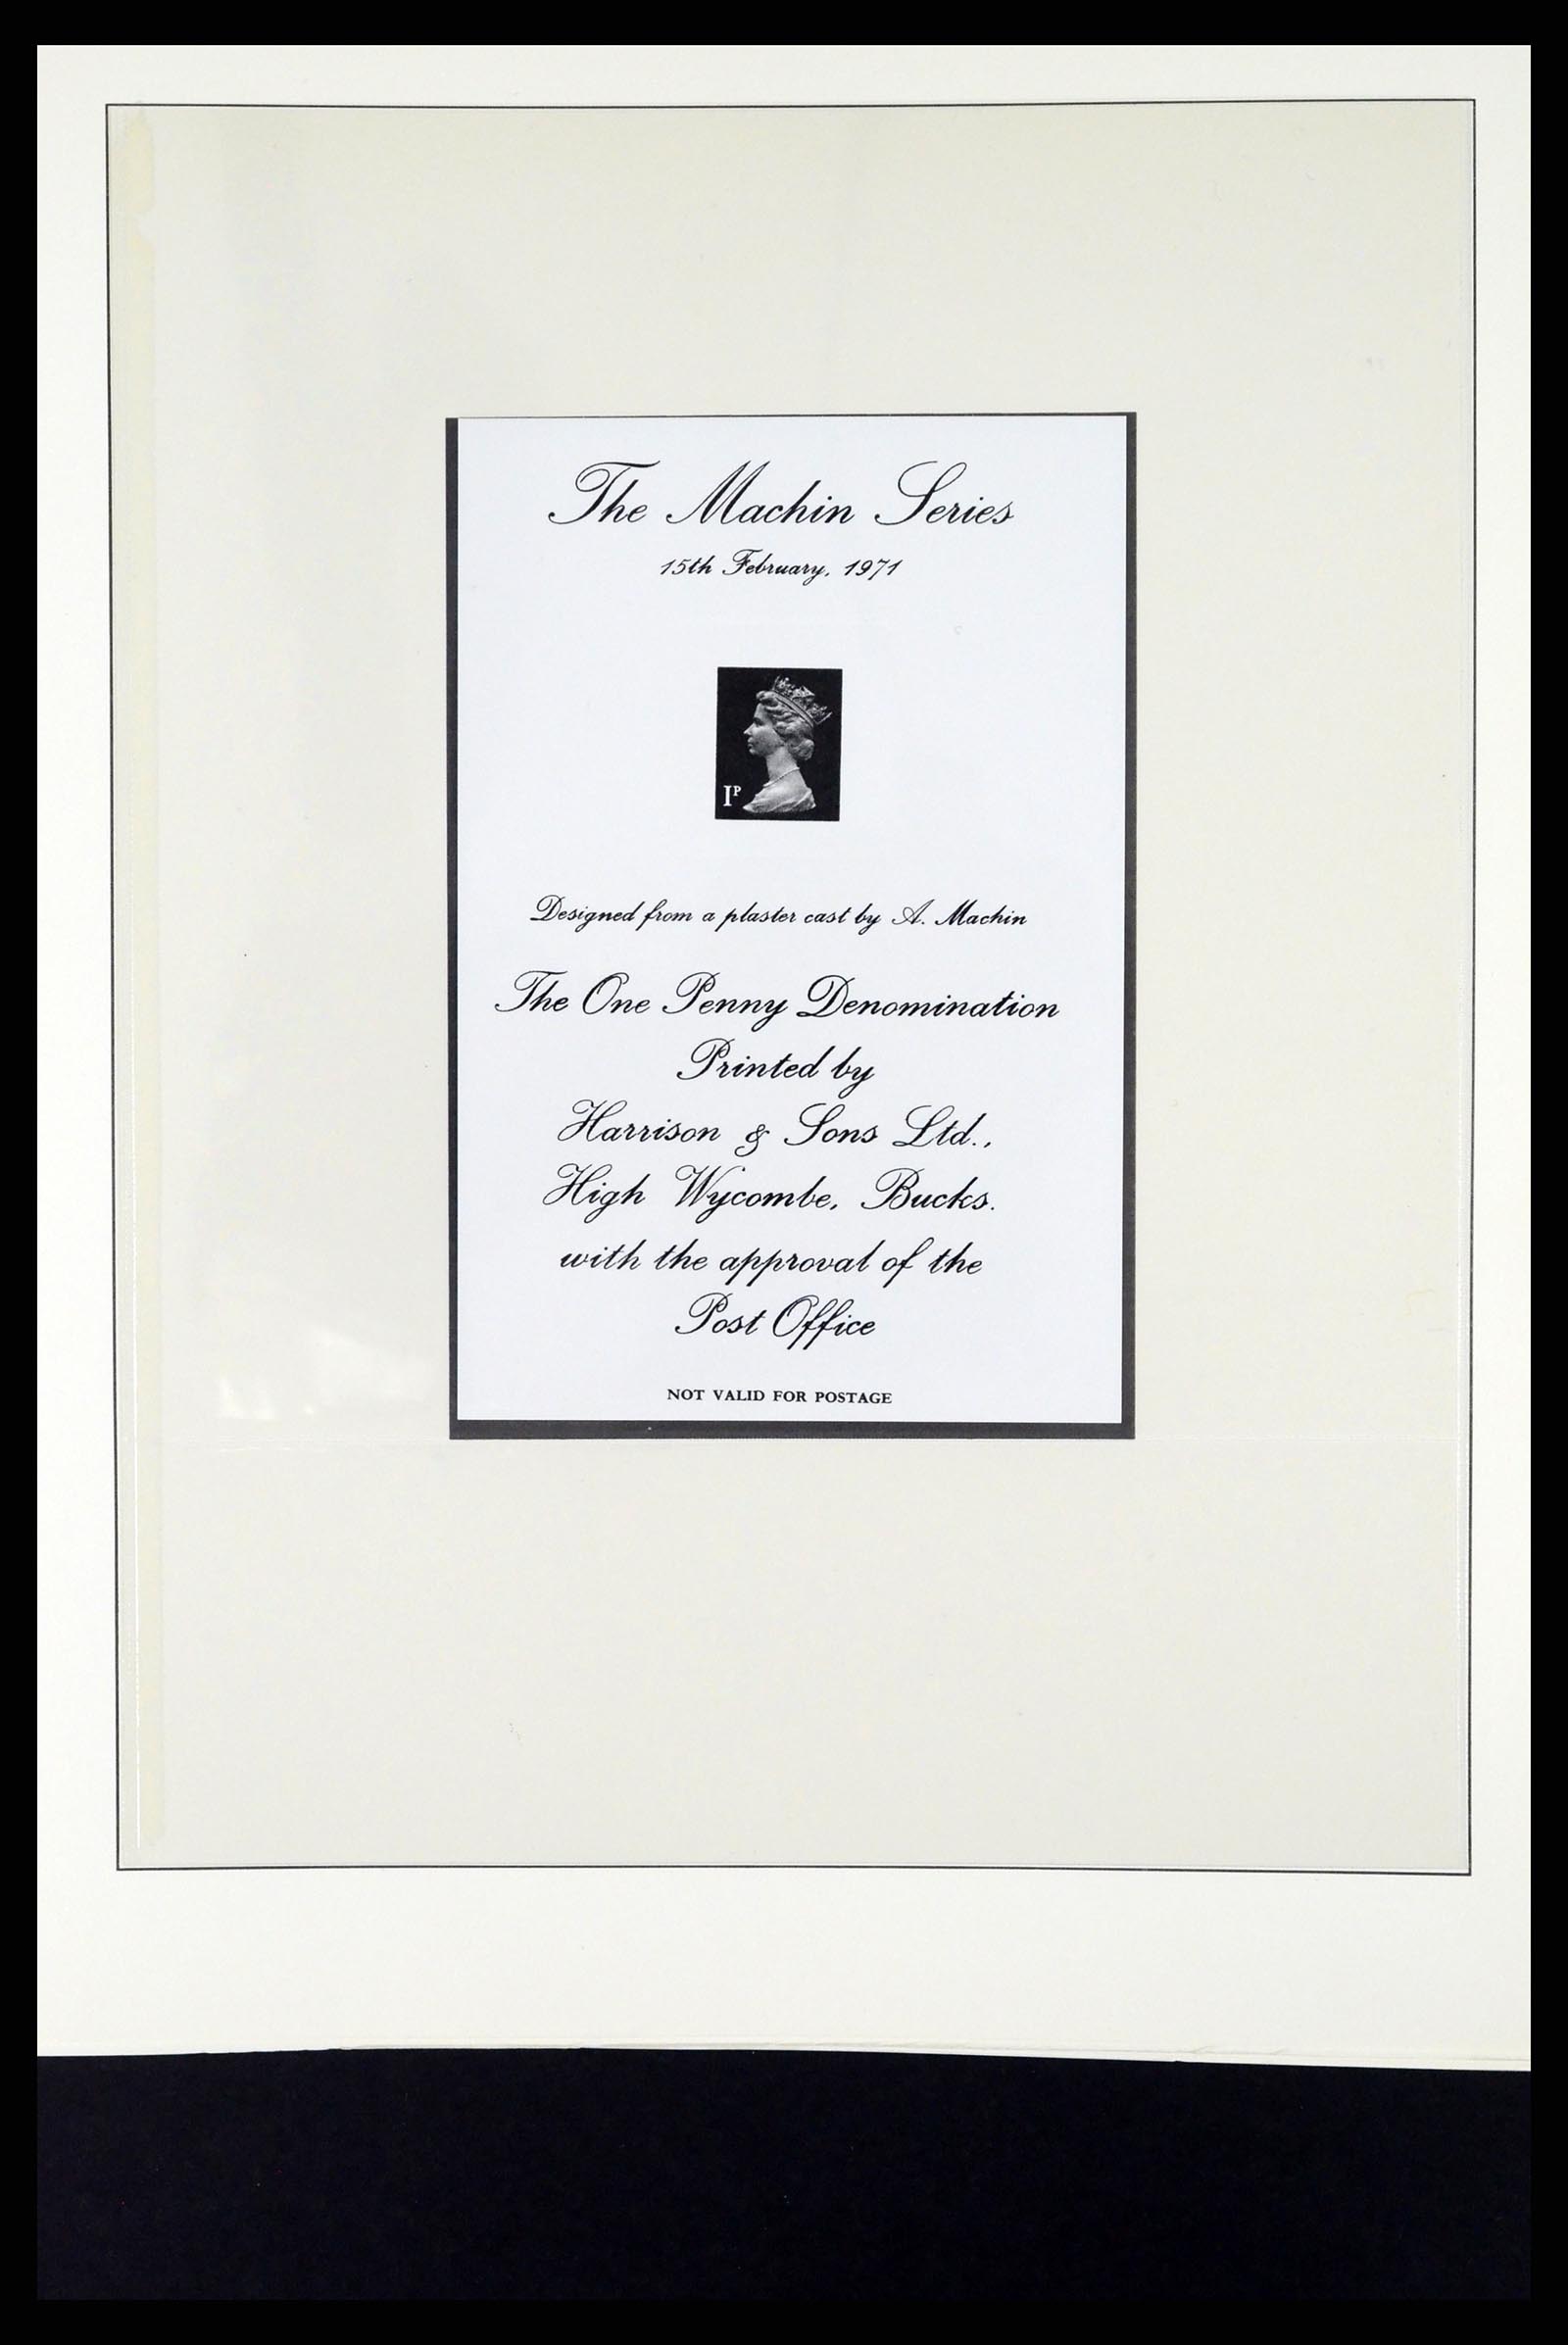 The Machin Series
15th February, 1971
1P
Designed from a plaster cast by A. Machin
The One Penny Denomination
Printed by
Harrison & Sons Ltd.,
High Wycombe, Bucks.
with the approval of the
Post Office
NOT VALID FOR POSTAGE